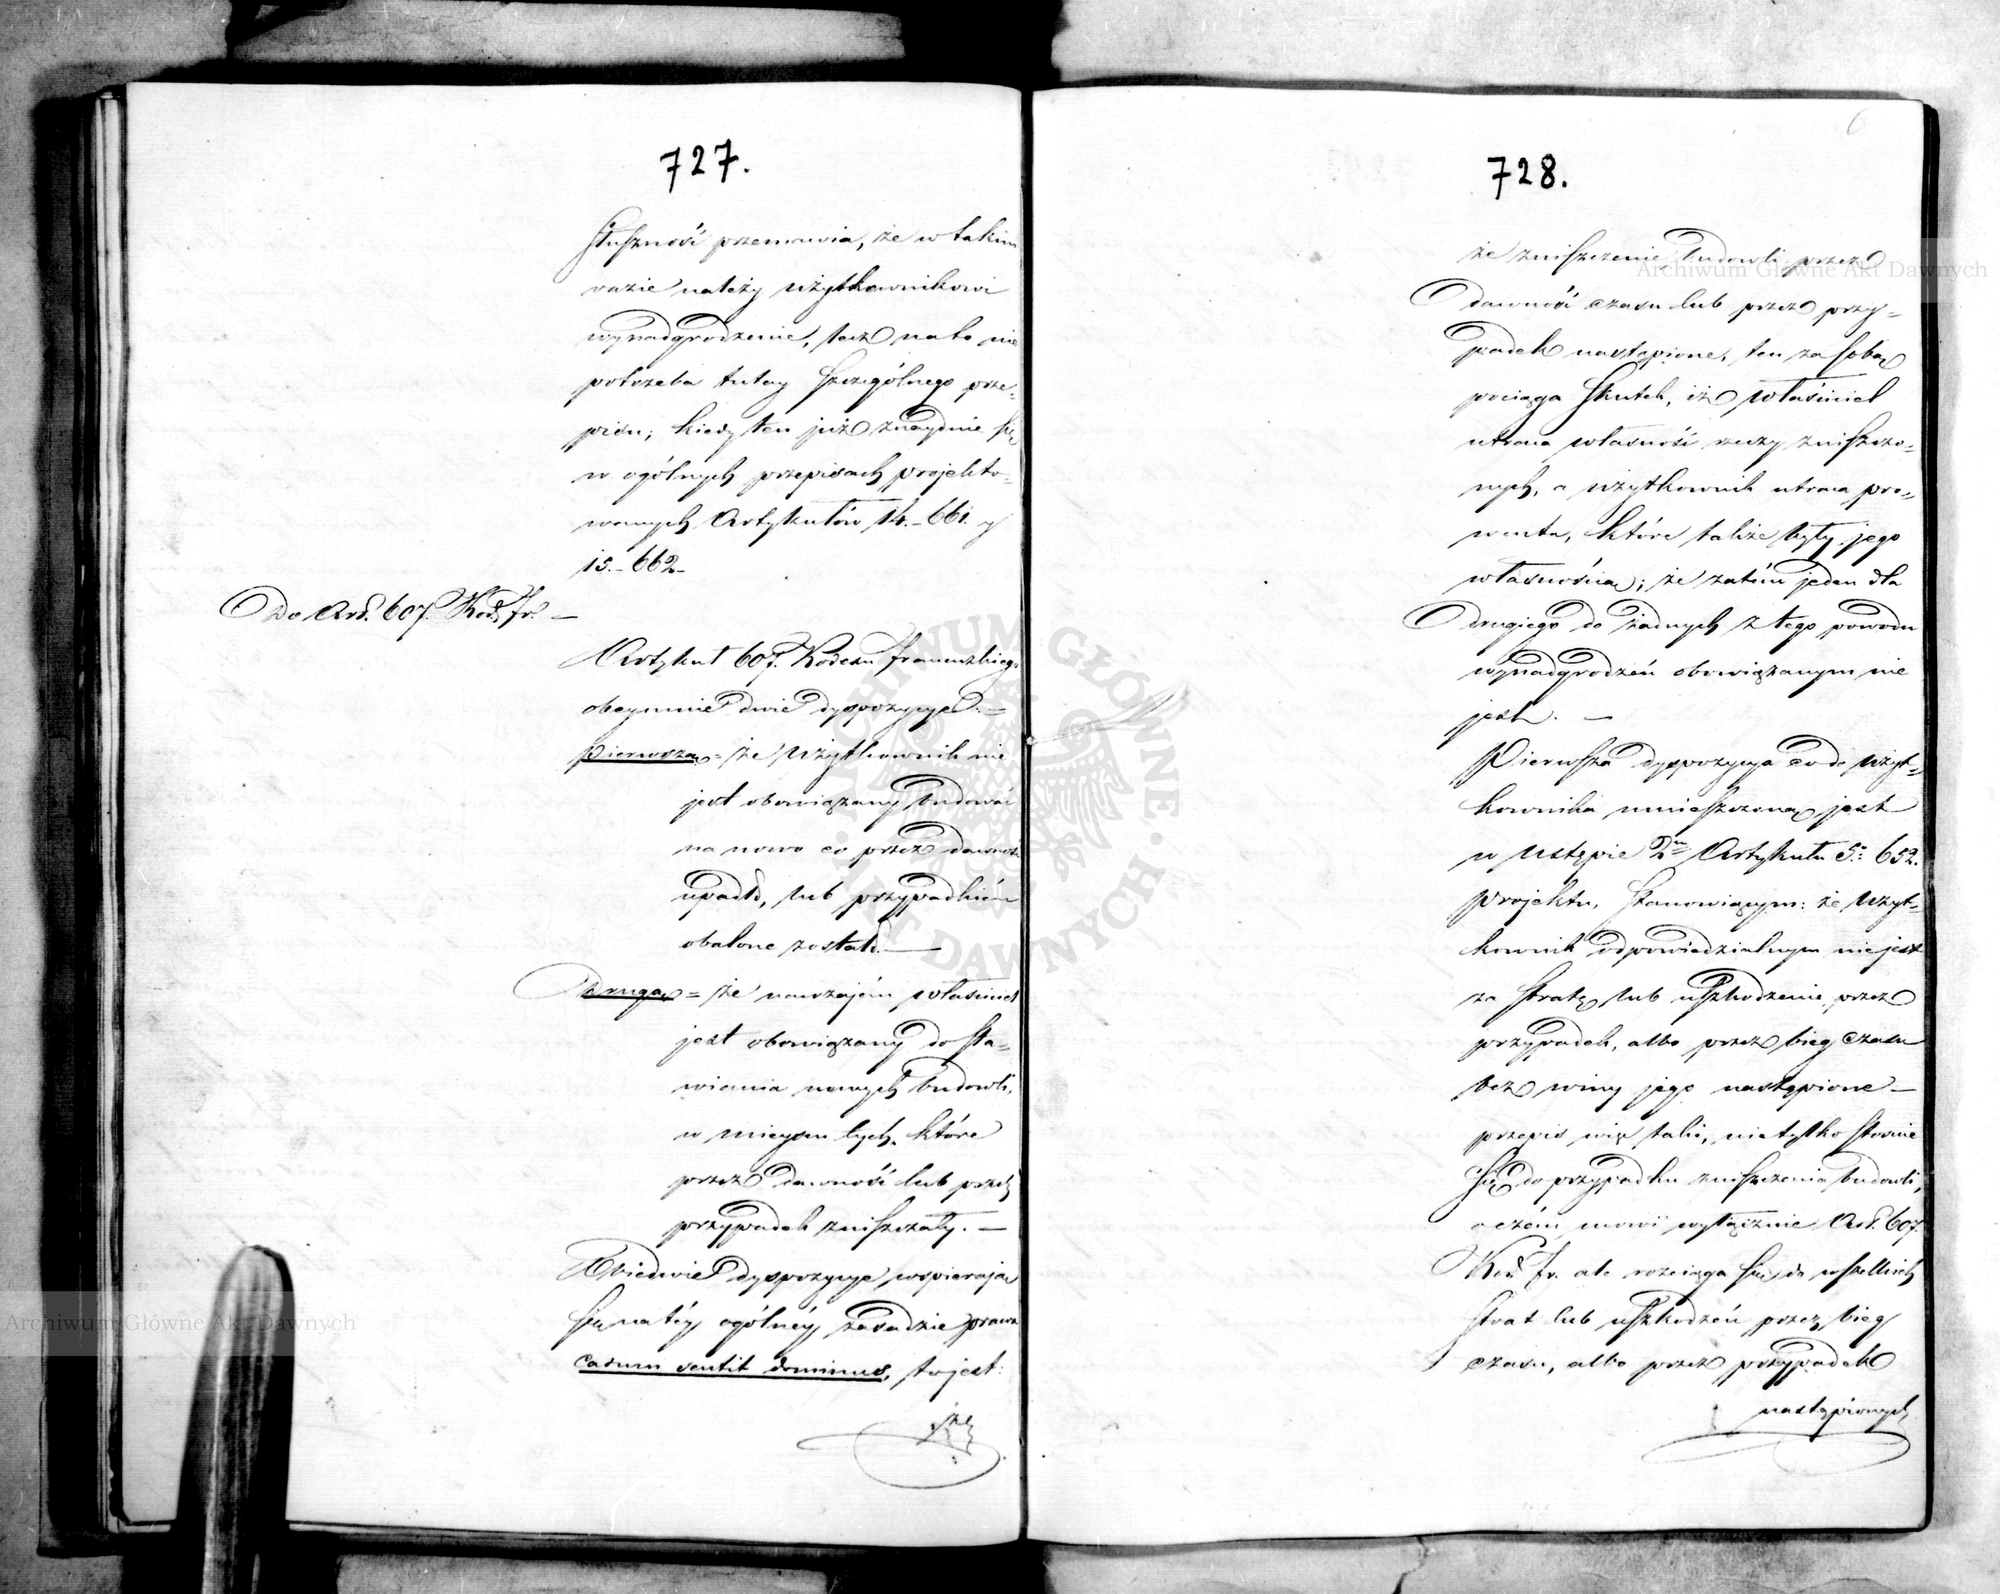 727.
słuszność przemawia, że w takim
razie należy użytkownikowi
wynadgrodzenie, lecz na to nie
potrzeba tutay szczególnego prze-
pisu; kiedy ten już znayduie się
w ogólnych przepisach projekto-
wanych Artykułów 14.-661. y
15.-662-
Do Art. 607. Kod. fr. —
Artykuł 607. Kodexu francuzkiego
obeymuie dwie dyspozycye. —
pierwszą = że użytkownik nie
jest obowiązany budować
na nowo co przez dawność
upadło, lub przypadkiem
obalone zostało. —
Drugą = że nawzajem właściciel
jest obowiązany do sta-
wiania nowych budowli,
w mieyscu tych, które
przez dawność lub przez
przypadek zniszczały. —
Obiedwie dyspozycye wspierają
się na téy ogólnéy zasadzie prawa
casum sentit dominus, to jest:
że
728.
że zniszczenie budowli przez
dawność czasu lub przez przy-
padek nastąpione, ten za sobą
pociąga skutek, iż właściciel
utraca własność rzeczy zniszczo-
nych, a użytkownik utraca pro-
wenta, które także były jego
własnością; że zatém jeden dla
drugiego do żadnych z tego powodu
wynadgrodzeń obowiązanym nie
jest. —
Pierwsza dyspozycya co do użyt-
kownika umieszczoną jest
w ustępie 2m Artykułu 5.: 652.
Projektu, stanowiącym: że użyt-
kownik odpowiedzialnym nie jest
za stratę lub uszkodzenie, przez
przypadek, albo przez bieg czasu
bez winy jego nastąpione —
przepis więc taki, nie tylko stosuie
się do przypadku zniszczenia budowli,
o czém mówi wyłącznie Art. 607.
Kod. fr. ale rozciąga się do wszelkich
strat lub uszkodzeń przez bieg
czasu, albo przez przypadek
nastąpionych
Archiwum Główne Akt Dawnych
Archiwum Główne Akt Dawnych
ARCHIWUM GŁÓWNE AKT DAWNYCH